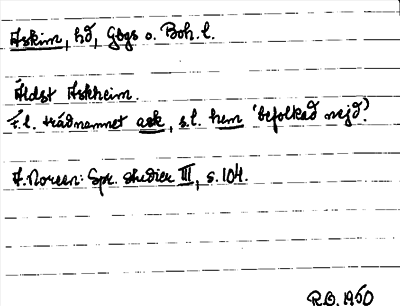 Askim, hd, Gbgs o. Boh. l.
Äldst Askheim.
F.l. trädnamnet ask, s.l. hem 'befolkad nejd'.
A. Noreen: Spr. studier III, s. 104.
R.O. 1950